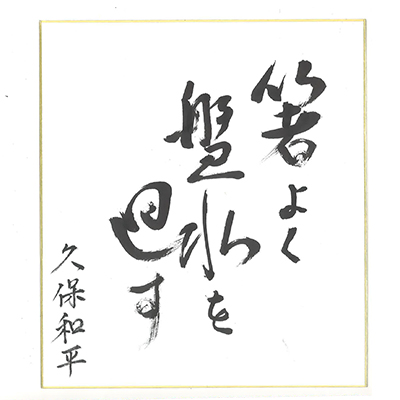 箸よく
盤水を
廻す
久保和平